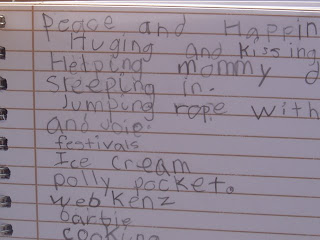 Peace and Happin
Huging and kissing
Helping mommy d
sleeping in.
Jumping rope with
and Joie.
festivals
Ice cream
polly pocket.
webkenz
barbie
cooking